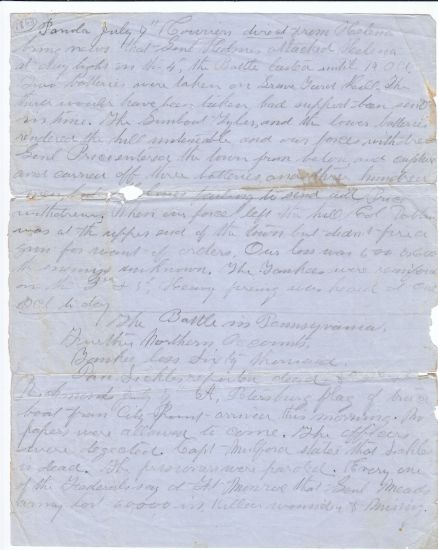 1863
Panola July 9th Couriers direct from Helena
bring news that Genl Holmes attacked Helena
at day light on the 4th, the Battle lasted until 10 Ock
Two batteries were taken on Grave Yard Hill. The
hill would have been taken had support been sent
in time. The Gunboat Tyler, and the lower batteries
rendered the hill untenable and our forces withdrew
Genl Price entered the town from below and captured
and carried off three batteries, and three hundred
failing to send aid Price
withdrew. When our forces left the hill Col
was at the upper end of the town but didn't fire a
gun for want of orders. Our loss was 600
unknown. The Yankees were reinforced
on the & 5th. Heavy firing was heard at
to day
The Battle in Pennsylvania.
Further Northern Accounts
Yankee loss Sixty thousand
Dan Sickles reported dead
Richmond July A Petersburg flag of truce
boat from City Point arrived this morning. No
papers were allowed to come. The officers
were Capt Mulford states that Sickles
is dead. The prisoners were paroled. Every one
of the Federals say at Ft Monroe that Genl Meads
army lost 60000 in Killed wounded & Missing.